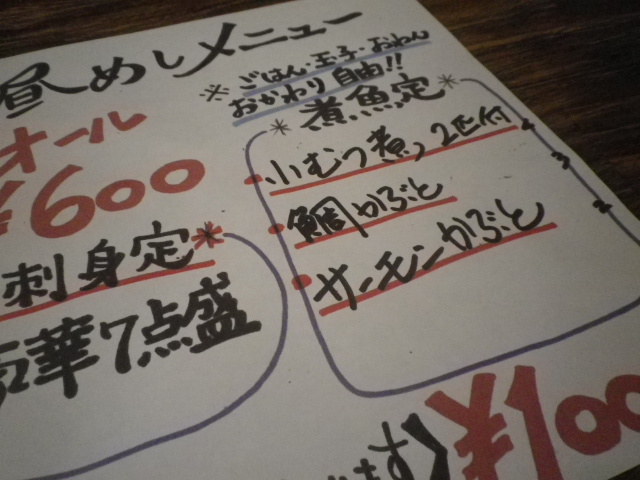 昼めしメニュー
※ごはん・玉子・おわん
おかわり自由!!
オール
¥600
*煮魚定*
・小むつ煮っ2匹付
・鯛かぶと
・サーモンかぶと
刺身定*
華7点盛